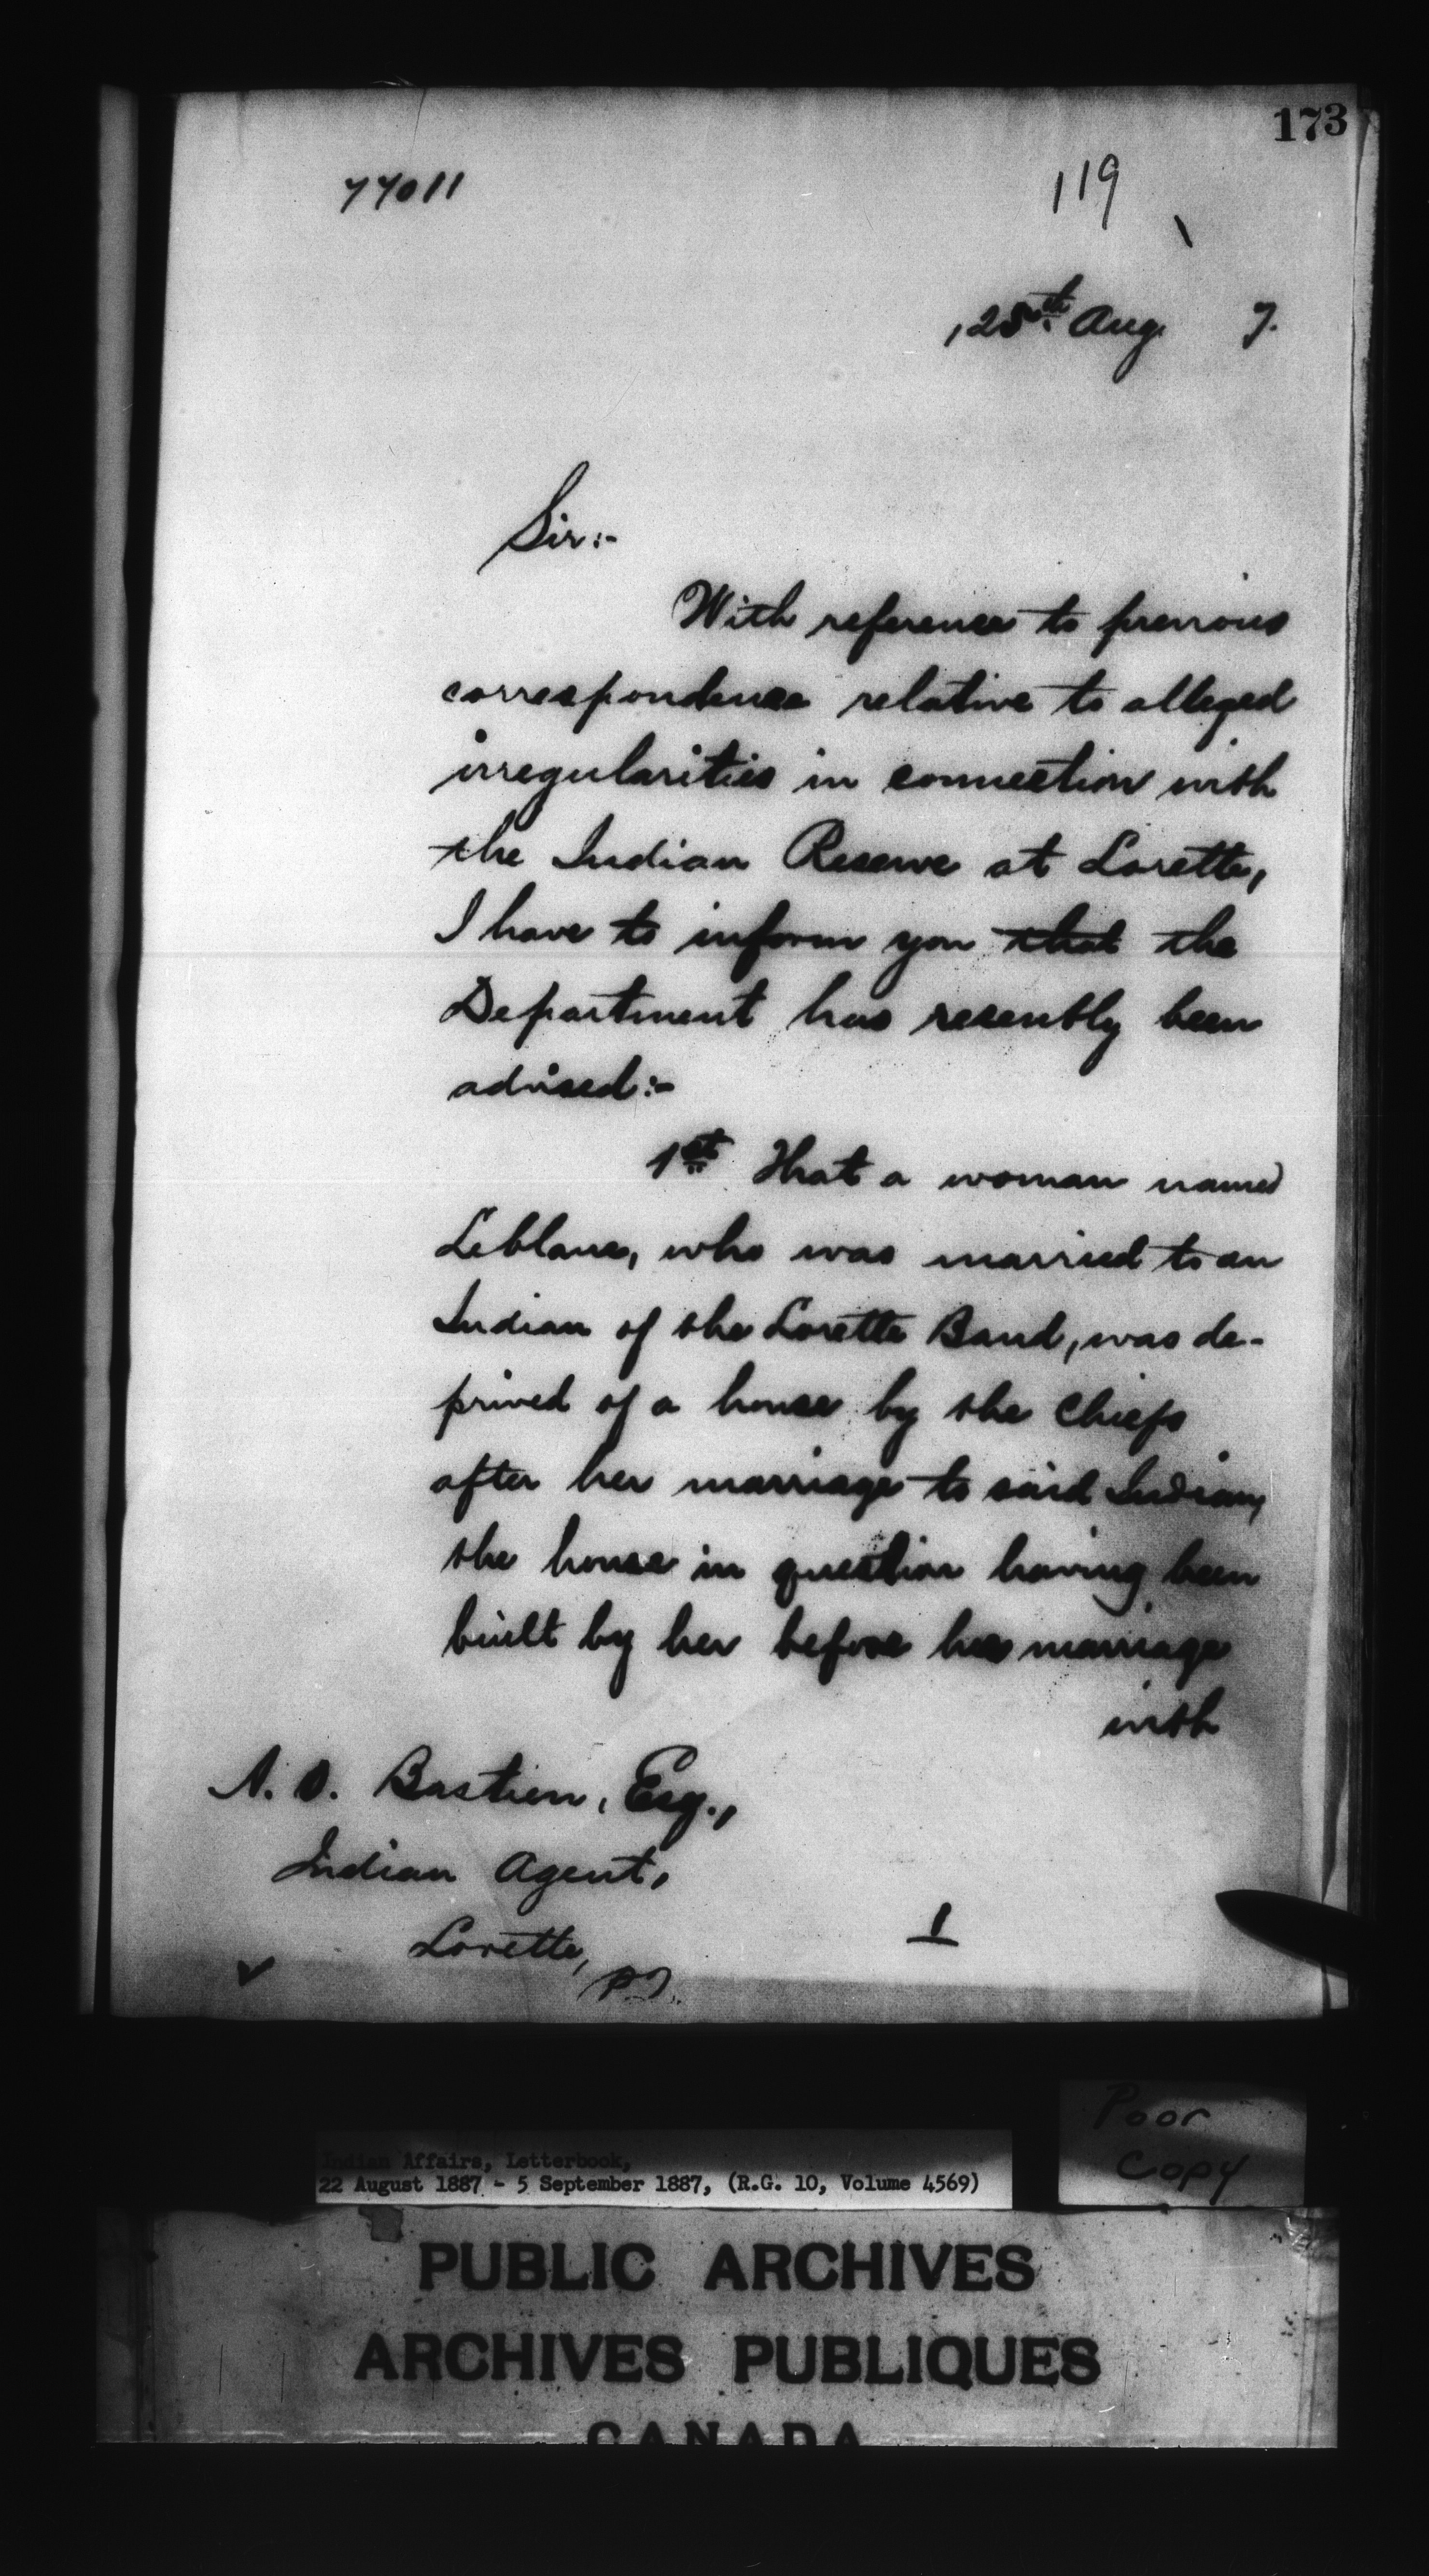 173
77011
119
25th Aug. 7.
Sir:-
With reference to previous
correspondence relative to alleged
irregularities in connection with
the Indian Reserve at Lorette,
I have to inform you that the
Department has recently been
advised:-
1st That a woman named
Leblanc, who was married to an
Indian of the Lorette Band, was de-
prived of a house by the Chiefs
after her marriage to said Indian,
the house in question having been
built by her before her marriage
with
A. O. Bastien, Esq.,
Indian Agent,
Lorette,
P.Q.
1
Poor
Copy
Indian Affairs, Letterbook,
22 August 1887 - 5 September 1887, (R.G. 10, Volume 4569)
PUBLIC ARCHIVES
ARCHIVES PUBLIQUES
CANADA